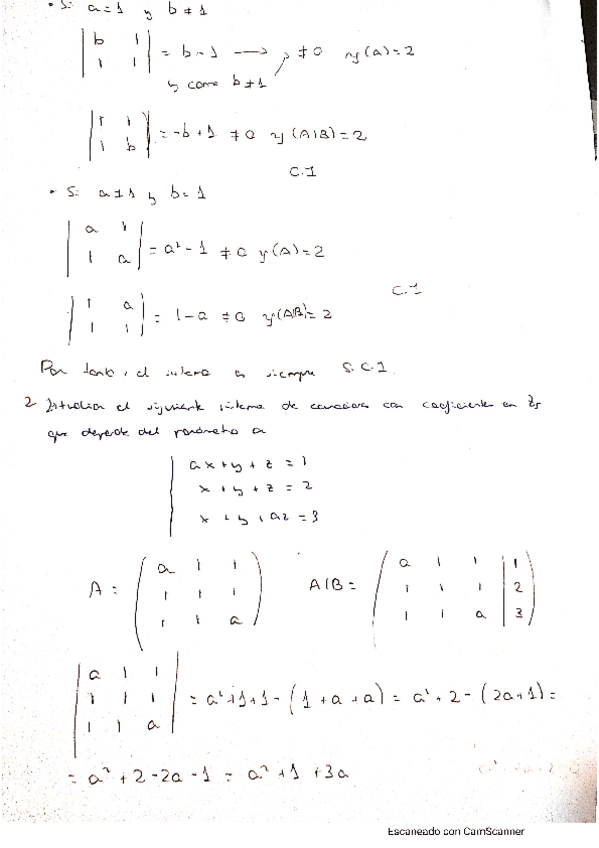 • Si a=1 y b≠1
| b 1 |
| 1 1 | = b-1 → ≠0 r(A)=2
y como b≠1
| 1 1 |
| 1 b | = -b+1 ≠0 r(A|B)=2
C.I
• Si a≠1 y b=1
| a 1 |
| 1 a | = a²-1 ≠0 r(A)=2
C.I
| 1 a |
| 1 1 | = 1-a ≠0 r(A|B)=2
Por tanto, el sistema es siempre S.C.I.
2 Estudiar el siguiente sistema de ecuaciones con coeficientes en Z5
que depende del parámetro a
ax+y+z=1
x+y+z=2
x+y+az=3
A = ( a 1 1 A|B = ( a 1 1 | 1
1 1 1 1 1 1 | 2
1 1 a ) 1 1 a | 3 )
| a 1 1 |
| 1 1 1 | = a²+1+1-(1+a+a) = a²+2-(2a+1) =
| 1 1 a |
= a²+2-2a-1 = a²+1+3a
Escaneado con CamScanner